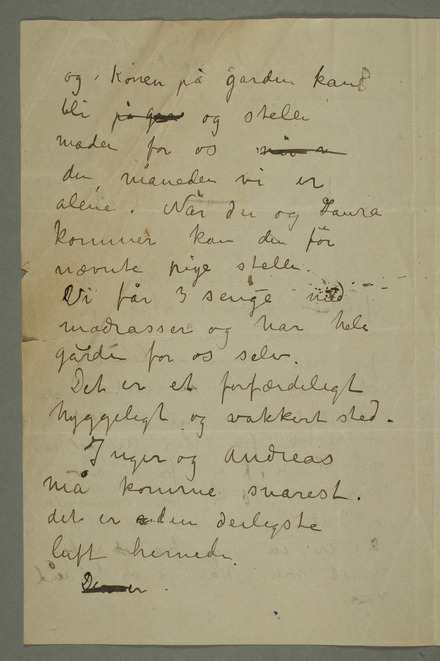 og, Konen på gården kan
bli på går og stelle
maden for os når vi
den måneden vi er
alene. Når du og Laura
kommer kan den før
nævnte pige stelle.
Vi får 3 senge med
madrasser og har hele
gården for os selv.
Det er et forfærdeligt
hyggeligt og vakkert sted.
Inger og Andreas
må komme snarest.
det er den deiligste
luft hernede.
Den er